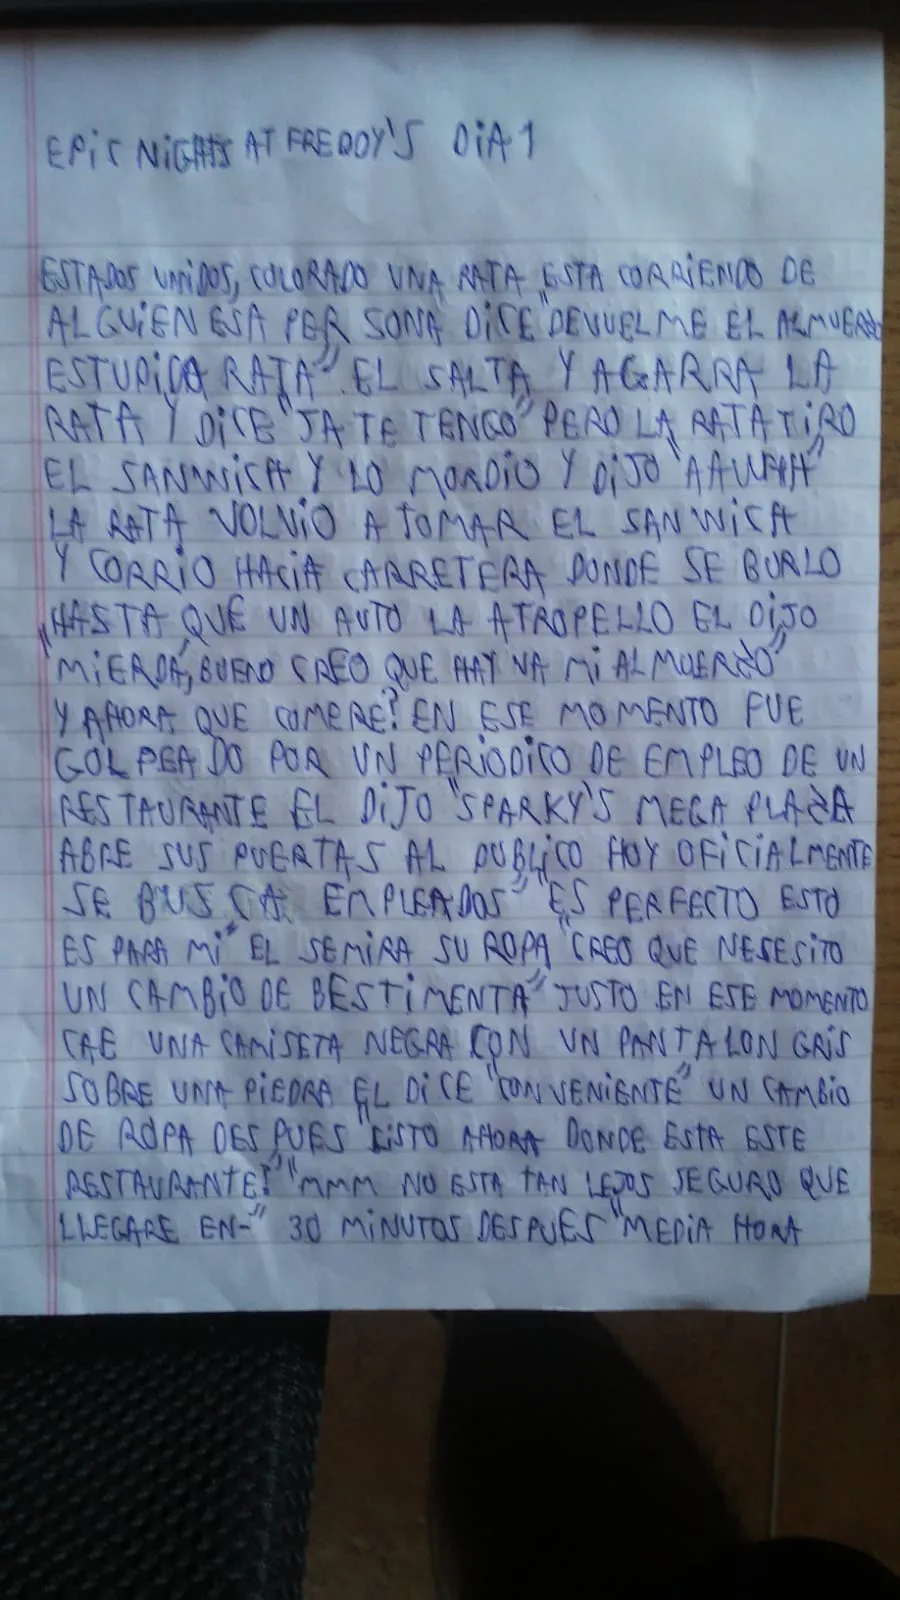 EPIC NIGHTS AT FREDDY'S DIA 1
ESTADOS UNIDOS, COLORADO UNA RATA ESTA CORRIENDO DE
ALGUIEN ESA PER SONA DICE "DEVUELME EL ALMUERZO
ESTUPIDA RATA" EL SALTA Y AGARRA LA
RATA Y DICE "JA TE TENGO" PERO LA RATA TIRO
EL SANWICH Y LO MORDIO Y DIJO
LA RATA VOLVIO A TOMAR EL SANWICH
Y CORRIO HACIA CARRETERA DONDE SE BURLO
HASTA QUE UN AUTO LA ATROPELLO EL DIJO
"MIERDA, BUENO CREO QUE HAY VA MI ALMUERZO"
Y AHORA QUE COMERE? EN ESE MOMENTO FUE
GOLPEADO POR UN PERIODICO DE EMPLEO DE UN
RESTAURANTE EL DIJO "SPARKY'S MEGA PLAZA
ABRE SUS PUERTAS AL PUBLICO HOY OFICIALMENTE
SE BUSCA EMPLEADOS" "ES PERFECTO ESTO
ES PARA MI" EL SEMIRA SU ROPA "CREO QUE NESESITO
UN CAMBIO DE BESTIMENTA" JUSTO EN ESE MOMENTO
CAE UNA CAMISETA NEGRA CON UN PANTALON GRIS
SOBRE UNA PIEDRA EL DICE "CONVENIENTE" UN CAMBIO
DE ROPA DESPUES "LISTO AHORA DONDE ESTA ESTE
RESTAURANTE?" "MMM NO ESTA TAN LEJOS SEGURO QUE
LLEGARE EN-" 30 MINUTOS DESPUES "MEDIA HORA